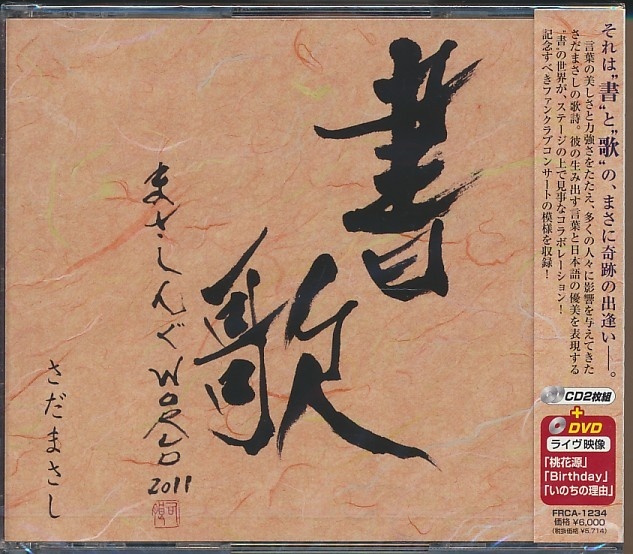 書
歌
まさしんぐWORLD
2011
さだまさし
それは"書"と"歌"の、まさに奇跡の出逢い――。
言葉の美しさと力強さをたたえ、多くの人々に影響を与えてきた
さだまさしの歌詩。彼の生み出す言葉と日本語の優美を表現する
"書"の世界が、ステージの上で見事なコラボレーション！
記念すべきファンクラブコンサートの模様を収録！
CD2枚組
+
DVD
ライヴ映像
「桃花源」
「Birthday」
「いのちの理由」
FRCA-1234
価格 ¥6,000
(税抜価格 ¥5,714)